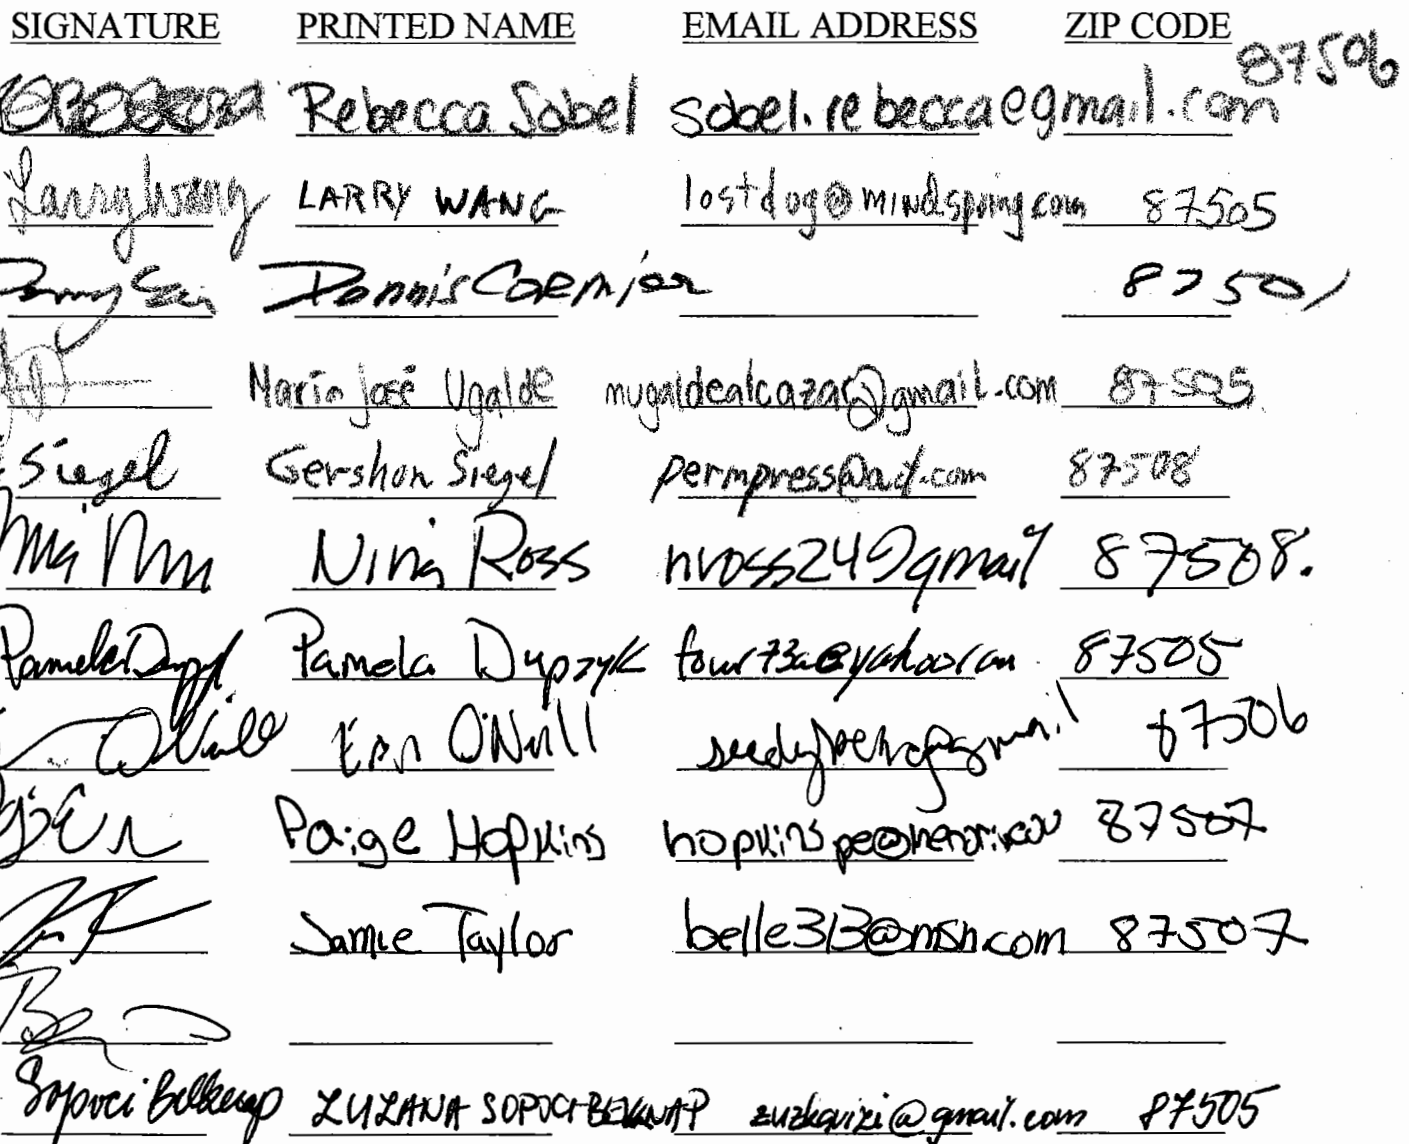 SIGNATURE PRINTED NAME EMAIL ADDRESS ZIP CODE
Rebecca Sobel sobel.rebecca@gmail.com 87506
Larry Wang LARRY WANG lostdog@mindspring.com 87505
Dennis Cormier 87501
María José Ugalde mugaldealcazar@gmail.com 87505
Siegel Gershon Siegel permpress@aol.com 87508
Nina Ross nvoss24@gmail 87508.
Pamela Pamela Dupzyk four73a@yahoo.com 87505
O'Neill Erin O'Neill 87506
Paige Hopkins 87507
Jamie Taylor belle313@msn.com 87507
Sopoci Belknap ZUZANA SOPOCI-BELKNAP zuzkavizi@gmail.com 87505